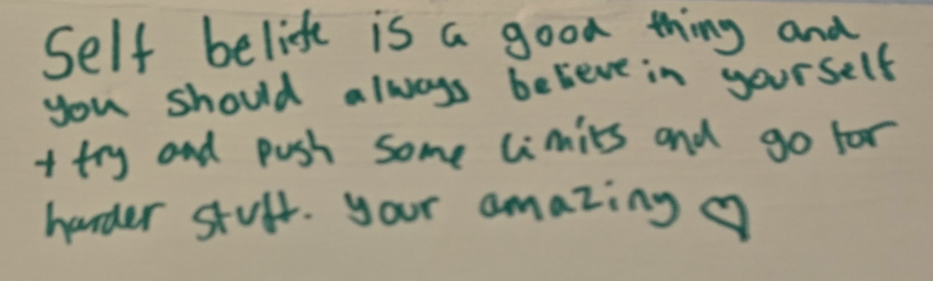 Self belife is a good thing and
you should always believe in yourself
+ try and push some limits and go for
harder stuff. your amazing ♡